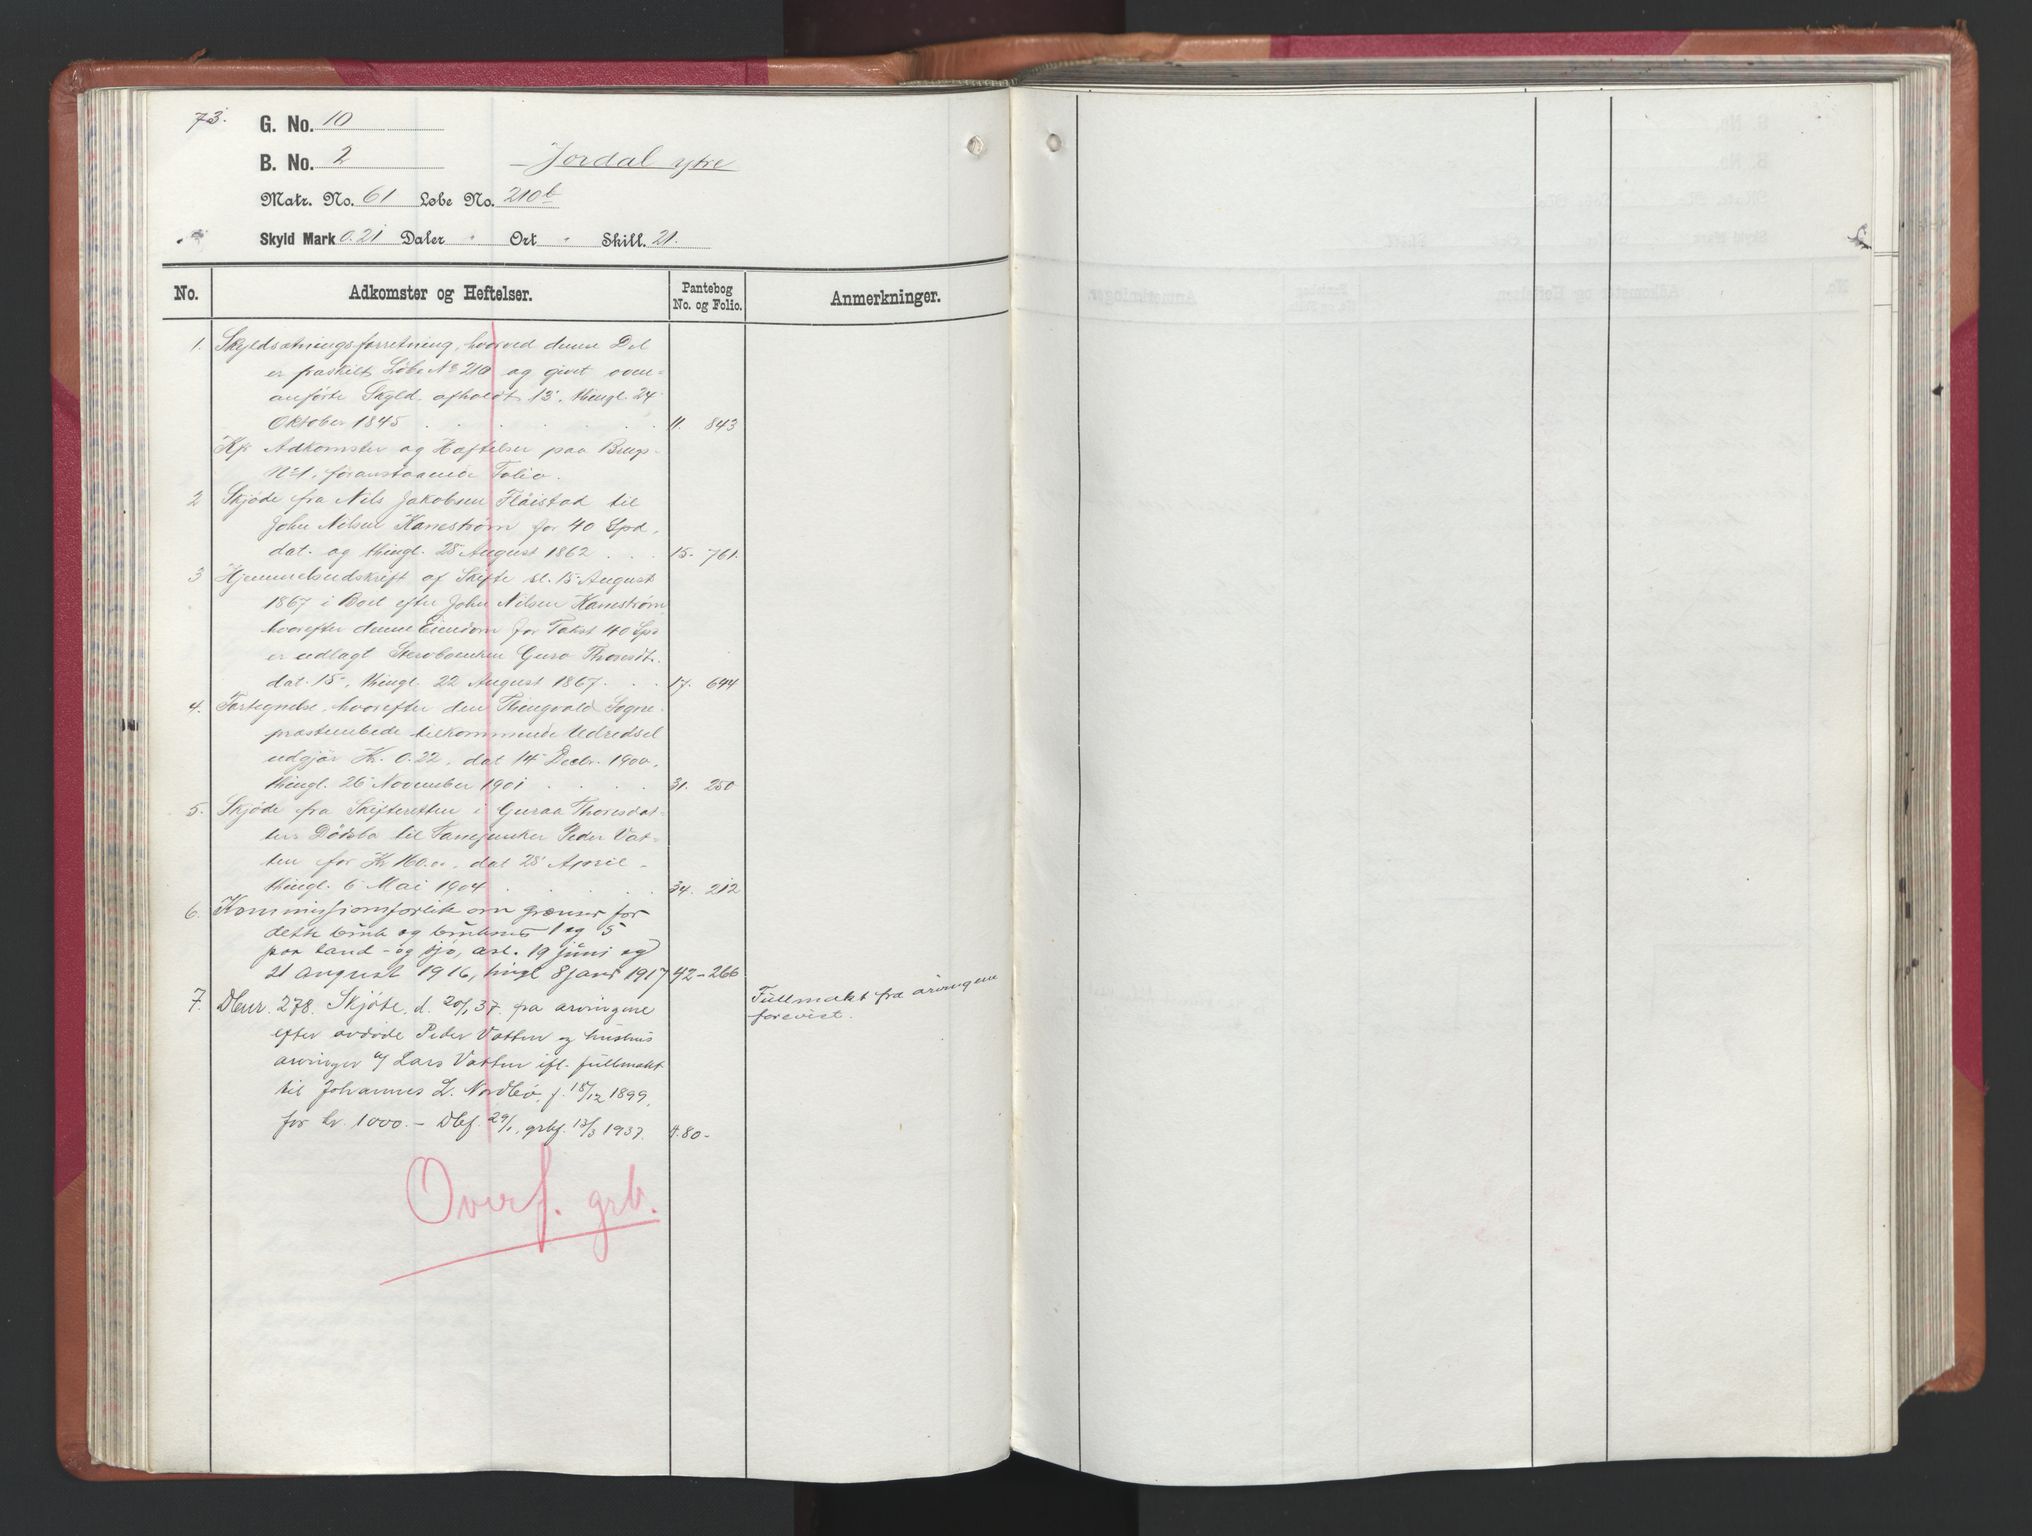 73.
G. No. 10
B. No. 2 Jordal ytre
Matr. No. 61 Løbe No. 210b
Skyld Mark 0.21 Daler " Ort " Skill. 21.
No. Adkomster og Heftelser. Pantebog No. og Folio. Anmerkninger.
1. Skyldsætningsforretning, hvorved denne Del
er fraskilt Løbe No 210 og givet oven-
anførte Skyld, afholdt 13, thingl. 24
Oktober 1845 11. 843
Kfr Adkomster og Hæftelser paa Brugs-
No 1, foranstaaende Folio.
2 Skjøde fra Nils Jakobsen Flåistad til
John Nilsen Kanestrøm for 40 Spd,
dat. og thingl. 28 August 1862 15. 761.
3 Hjemmelsudskrift af Skifte sl. 15 August
1867 i Boet efter John Nilsen Kanestrøm
hvorefter denne Eiendom for Takst 40 Spd
er udlagt Sterboenken Guro Thoresdt.
dat. 15, thingl. 22 August 1867. 17. 644
4. Fortegnelse, hvorefter den Thingvold Sogne-
præstembede tilkommende Udredsel
udgjør Kr. 0.22, dat 14 Decbr. 1900,
thingl. 26 November 1901 31. 250
5. Skjøde fra Skifteretten i Guraa Thoresdat-
ters Dødsbo til Fanejunker Peder Vat-
ten for Kr 160.00, dat 28 April
thingl. 6 Mai 1904 34. 212
6. Kommissionsforlik om grænser for
dette bruk og bruksno 1 og 5
paa land- og sjø, avl. 19 juni og
21 august 1916, tingl 8 jan 1917 42-266
7. Dbnr. 278. Skjøte, d. 20/1 37. fra arvingene Fullmakt fra arvingene
efter avdøde Peder Vatten og hushus forevist.
arvinger a/ Lars Vatten ifl. fullmakt
til Johannes L. Nordbø, f. 18/12 1899,
for kr. 1000.- Dbf. 29/1, grbf. 13/3 1937. A. 80-
Overf. grb.